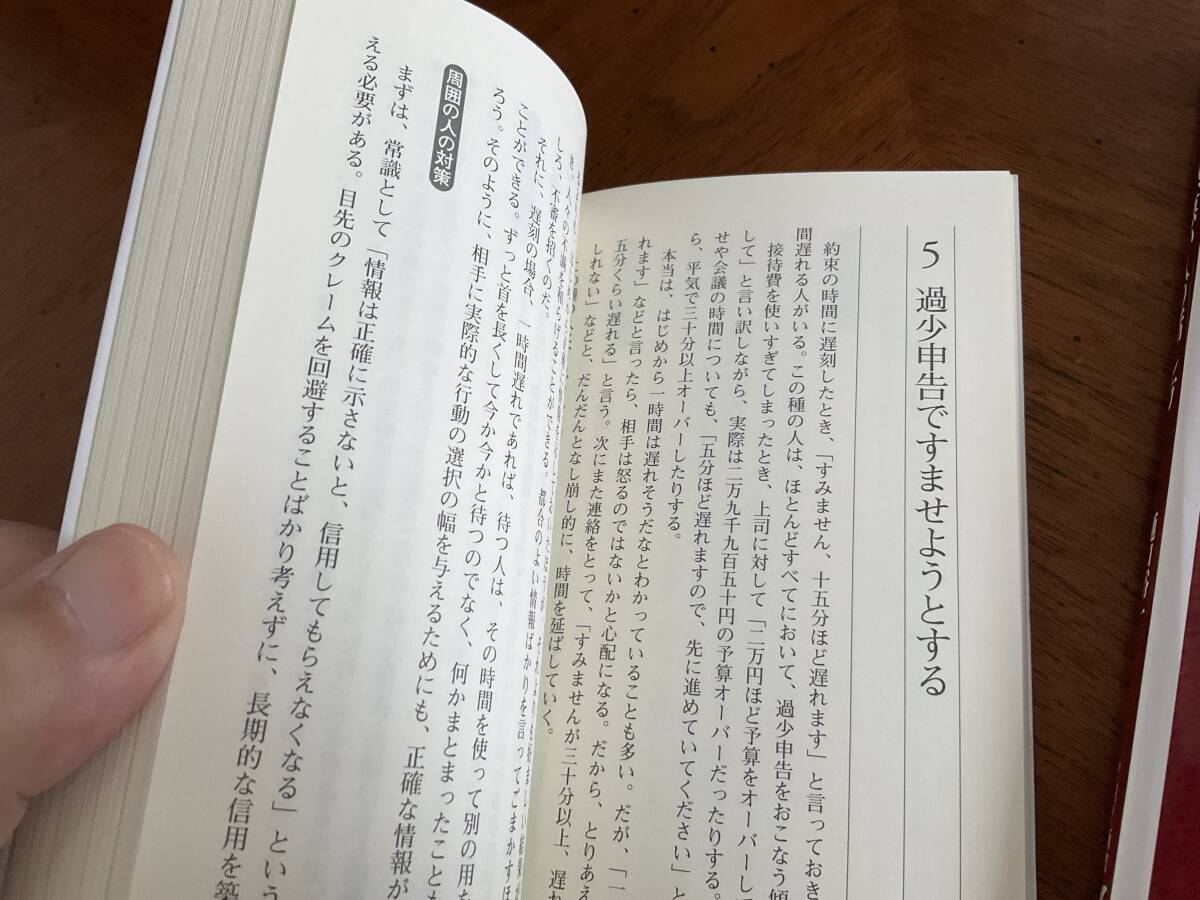 5 過少申告ですませようとする
約束の時間に遅刻したとき、「すみません、十五分ほど遅れます」と言っておき
間遅れる人がいる。この種の人は、ほとんどすべてにおいて、過少申告をおこなう傾
接待費を使いすぎてしまったとき、上司に対して「二万円ほど予算をオーバーし
して」と言い訳しながら、実際は二万九千九百五十円の予算オーバーだったりする。
せや会議の時間についても、「五分ほど遅れますので、先に進めていてください」と
ら、平気で三十分以上オーバーしたりする。
本当は、はじめから一時間は遅れそうだなとわかっていることも多い。だが、「一
れます」などと言ったら、相手は怒るのではないかと心配になる。だから、とりあえ
五分くらい遅れる」と言う。次にまた連絡をとって、「すみませんが三十分以上、遅れ
しれない」などと、だんだんとなし崩し的に、時間を延ばしていく。
しろ、不審を招くのだ。
それに、遅刻の場合、一時間遅れであれば、待つ人は、その時間を使って別の用を
ことができる。ずっと首を長くして今か今かと待つのでなく、何かまとまったことも
ろう。そのように、相手に実際的な行動の選択の幅を与えるためにも、正確な情報が
周囲の人の対策
まずは、常識として「情報は正確に示さないと、信用してもらえなくなる」という
える必要がある。目先のクレームを回避することばかり考えずに、長期的な信用を築